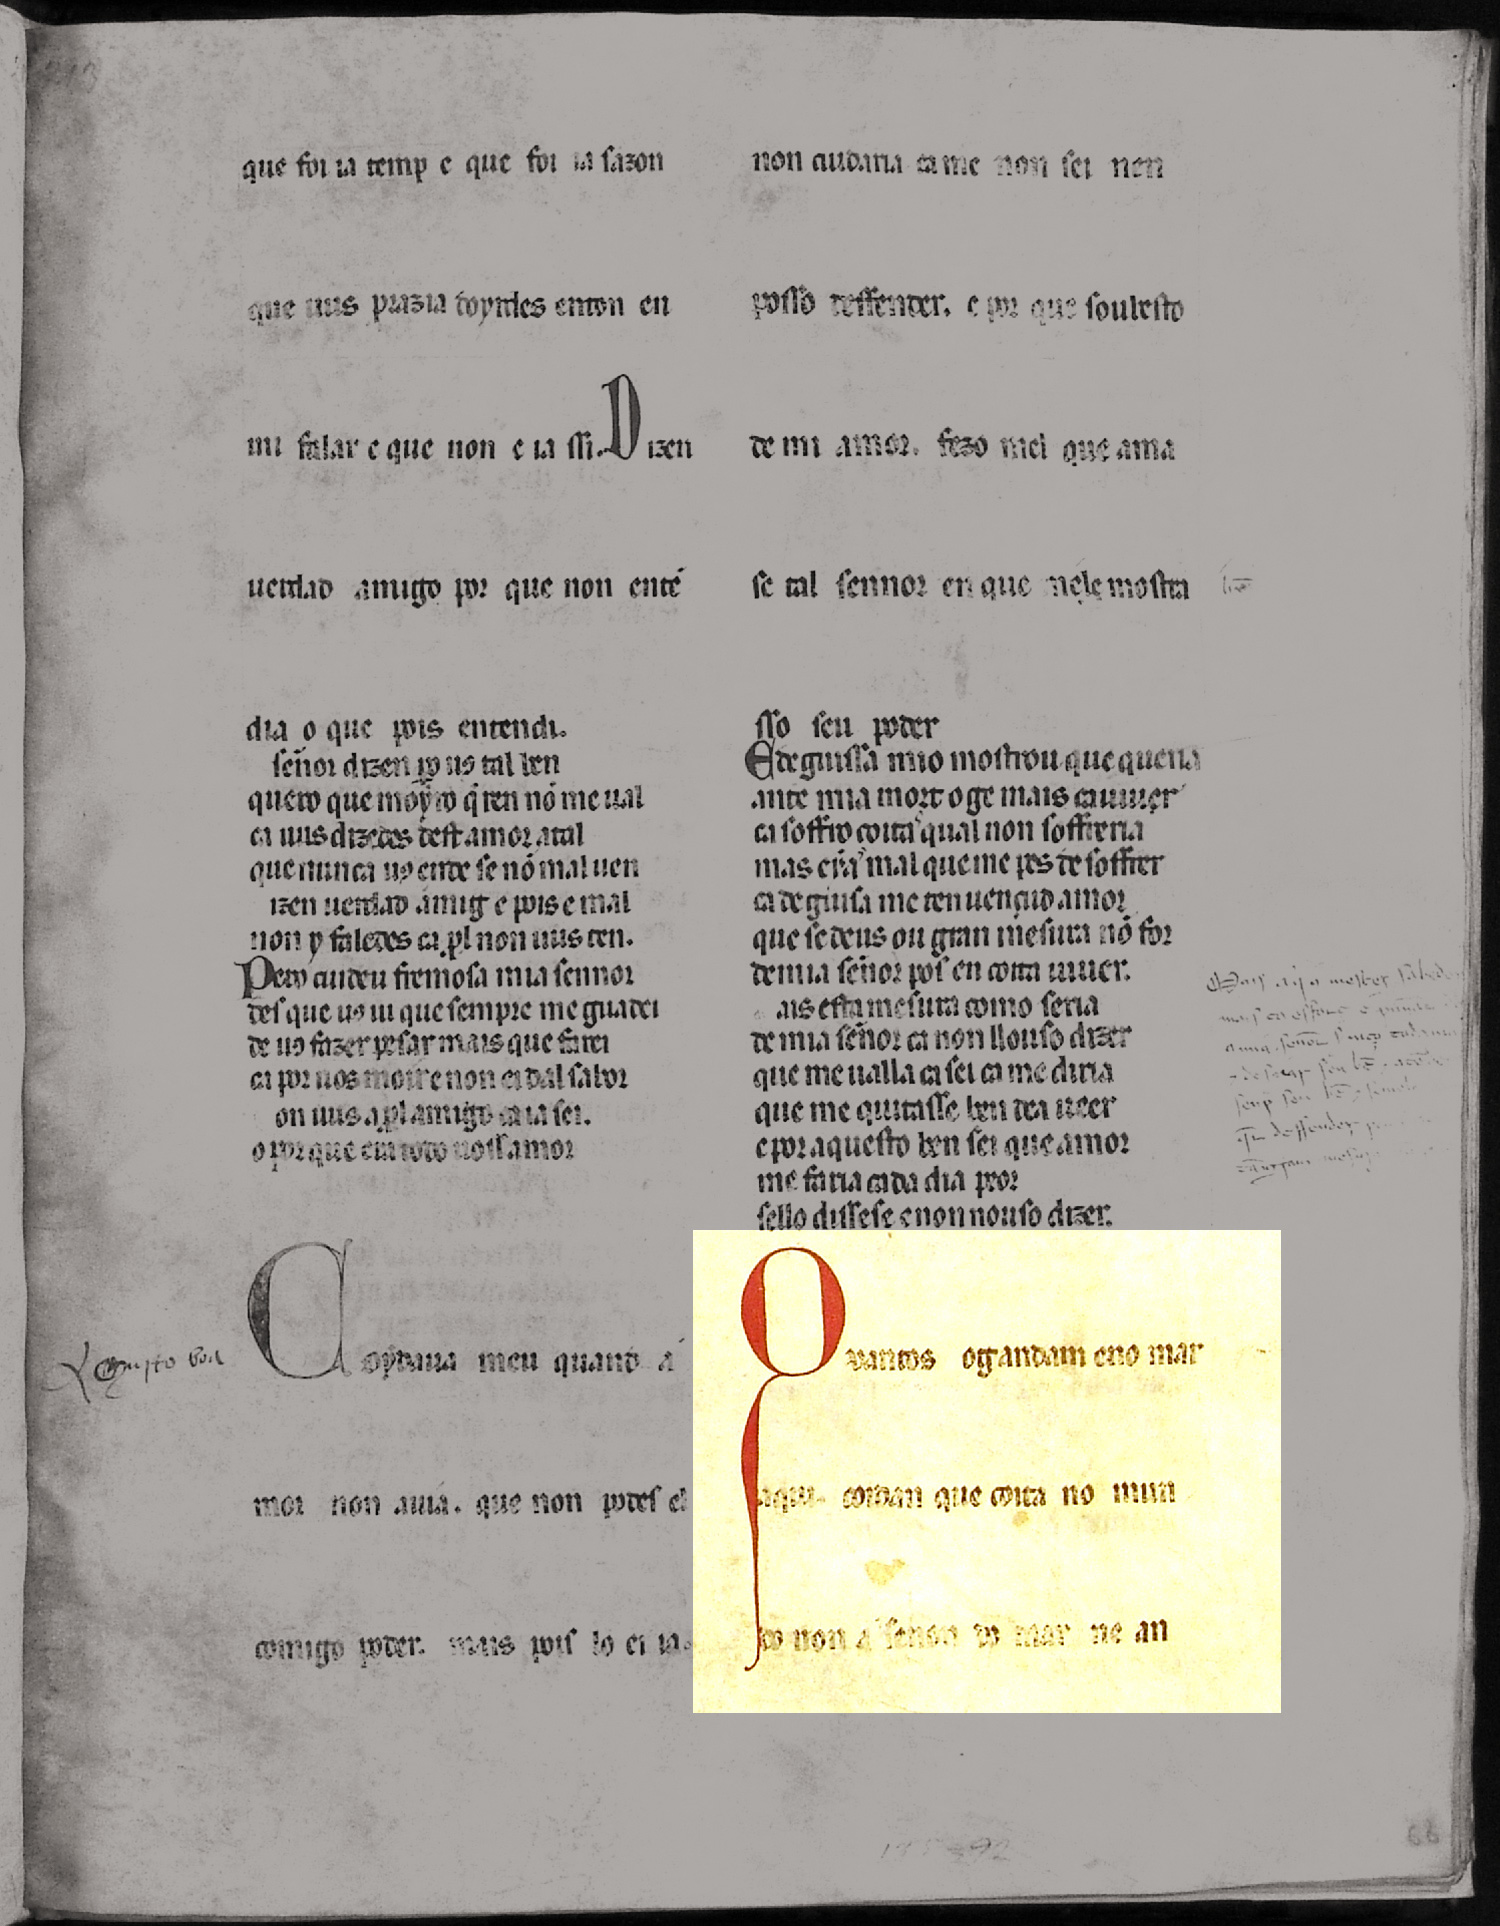 que foi ia temp e que foi ia sazon
que uus prazia doyrdes enton en
mi falar e que non e ia ssi. Dizen
uerdad amigo por que non enté
dia o que pois entendi.
señor dizen po us tal ben
quero que moyro q̃ ren nõ me ual
ca uus dizedes dest amor atal
que nunca uꝯ ende se nõ mal uen
izen uerdad amig e pois e mal
non y faledes ca pl non uus ten.
Pero cuideu fremosa mia sennor
des que uꝯ ui que sempre me guardei
de uꝯ fazer pesar mais que farei
ca por uos moire non ei dal sabor
on uus a pl amigo ca ia sei.
o por que era todo noss amor
Coydaua meu quand a
mor non auia. que non podess el
comigo poder. mais pois lo ei ia.
non cudaria ca me non sei nen
posso deffender. e por que soub esto
de mi amor. fezo mei que ama
se tal sennor en que mele mostra
sso seu poder
E deguissa mio mostrou que queria
ante mia mort oge mais ca uiuer
ca soffro coita qual non soffreria
mas era mal que me pes de soffrer
ca de guisa me ten uençud amor
que se deus ou gran mesura nõ for
de mia señor pos en coita uiuer.
ais esta mesura como seria
de mia señor ca non ll ouso dizer
que me ualla ca sei ca me diria
que me quitasse ben dea ueer
e por aquesto ben sei que amor
me faria cada dia peor
sello dissese e non nouso dizer.
Quantos og andam eno mar
aqui. coidan que coita no mun
do non a senon do mar ne an